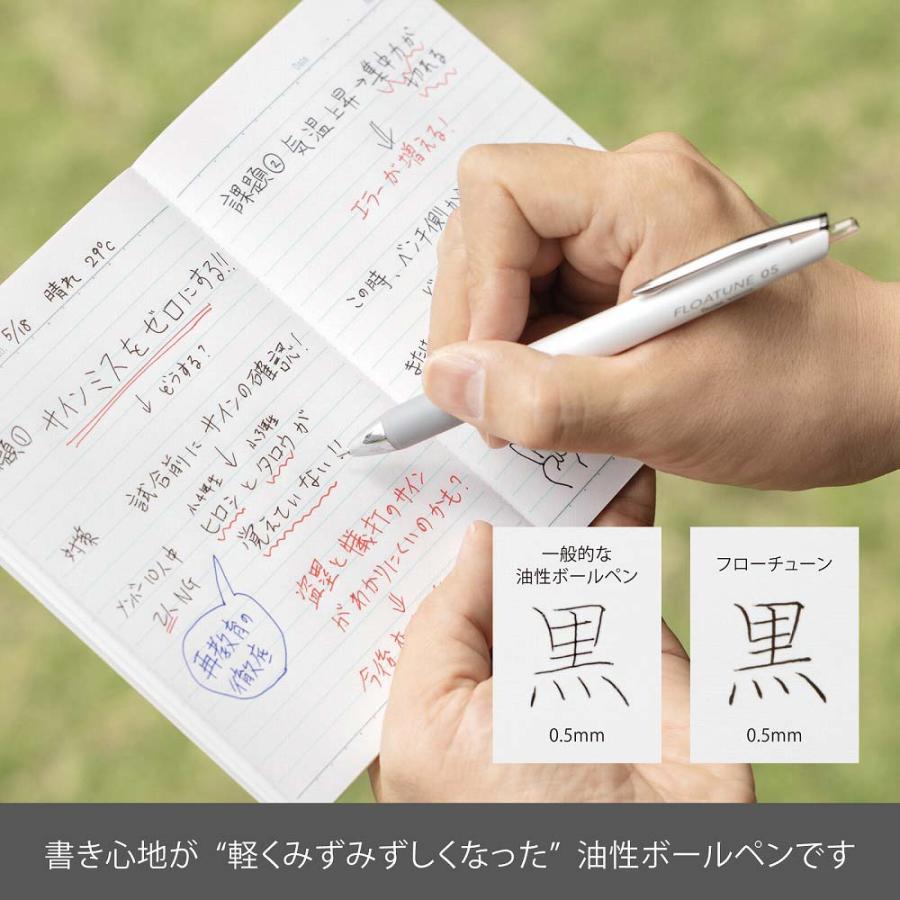 5/18 晴れ 29℃
題①
サインミスをゼロにする!!
↓どうする?
対策
試合前にサインの確認!
メンバー10人中
2人NG
小4男性 ↓ 小3男性
ヒロシとタロウが
覚えていない!!
再教育の
徹底
盗塁と犠打のサイン
がわかりにくいのかも?
↓
今後
課題② 気温上昇→集中力が
切れる
⇓
エラーが増える!
この時、ベンチ側か
または
FLOATUNE 05
一般的な
油性ボールペン
黒
0.5mm
フローチューン
黒
0.5mm
書き心地が“軽くみずみずしくなった”油性ボールペンです